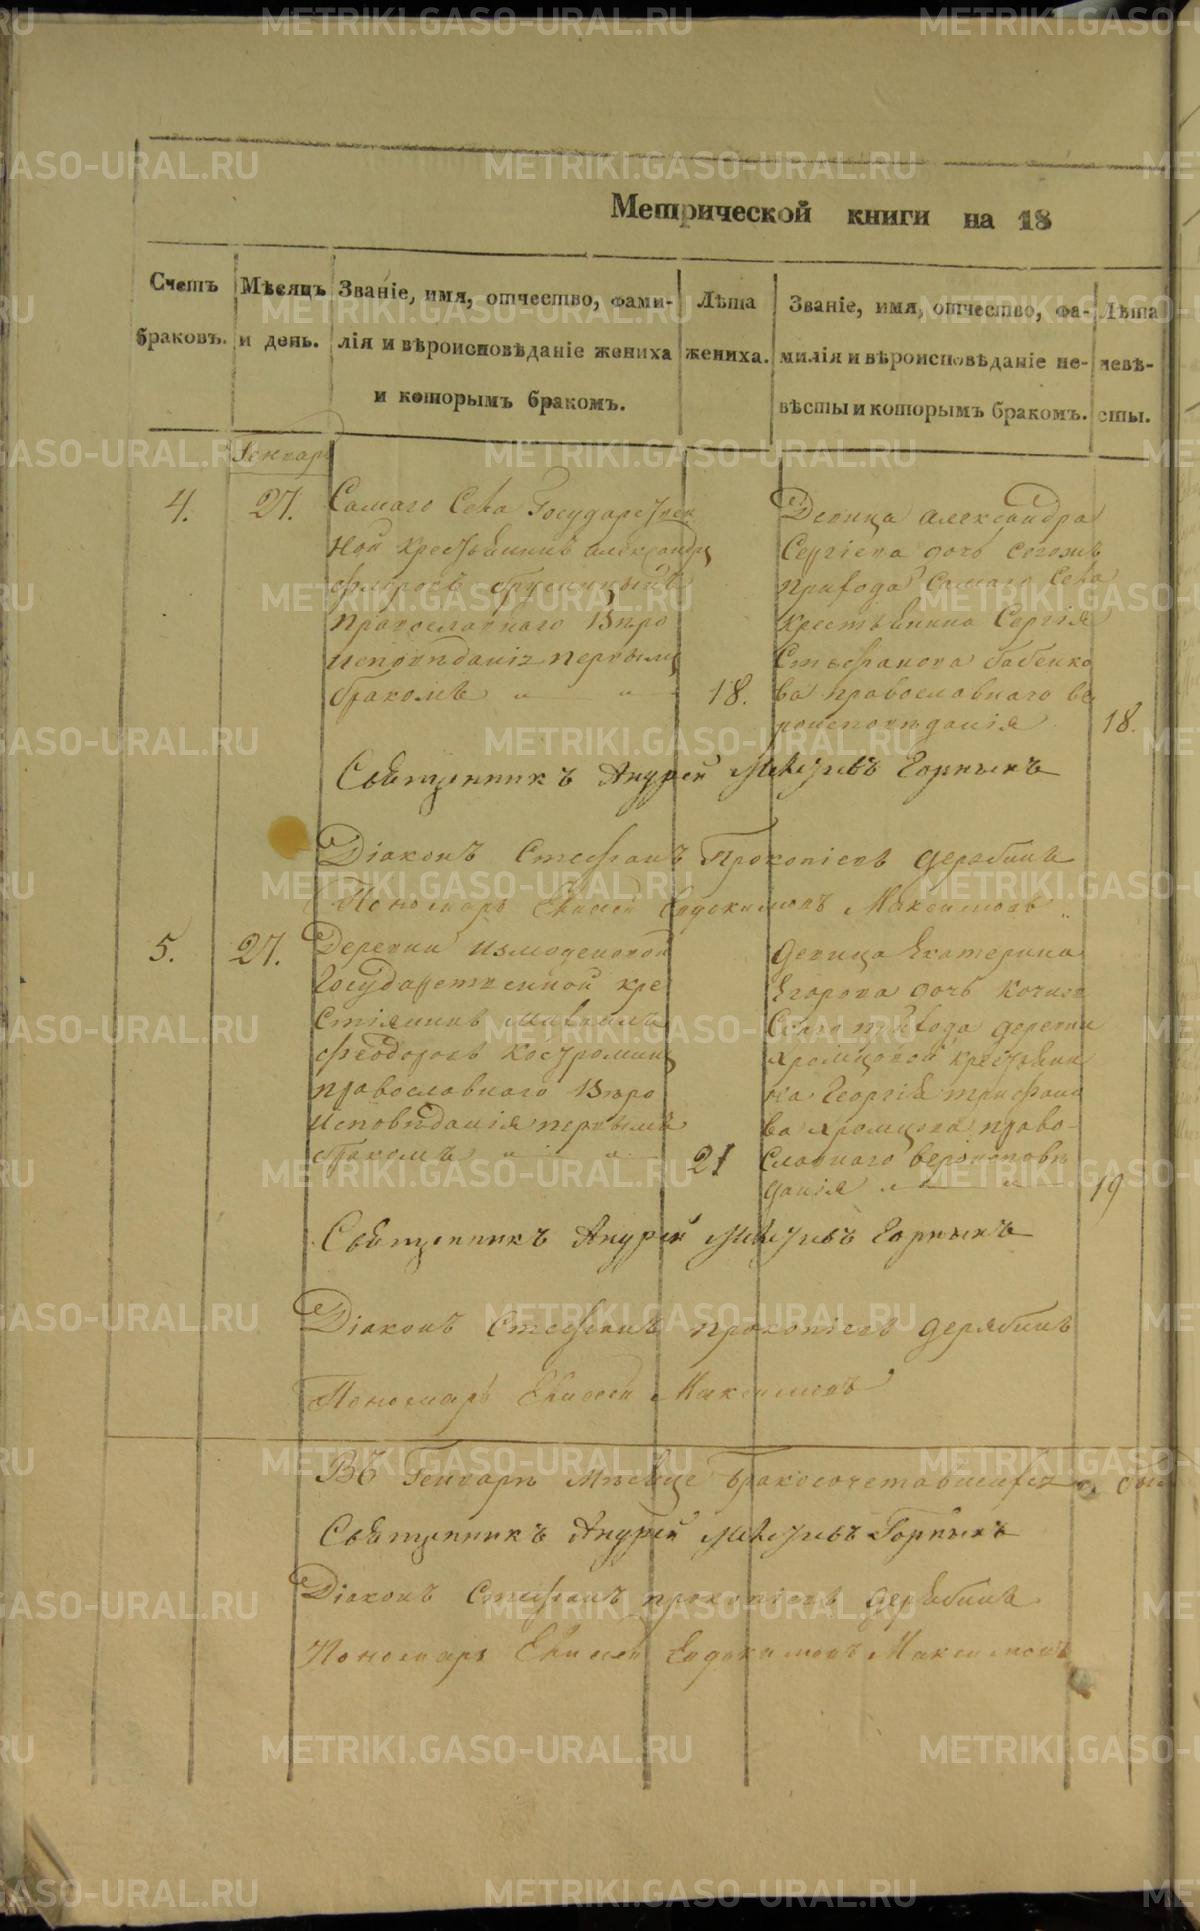 Метрической книги на 18
Счетъ браковъ.
Мѣсяцъ и день.
Званіе, имя, отчество, фами-
лія и вѣроисповѣданіе жениха
и которымъ бракомъ.
Лѣта
жениха.
Званіе, имя, отчество, фа-
милія и вѣроисповѣданіе не-
вѣсты и которымъ бракомъ.
Лѣта
невѣ-
сты.
Генварь
4.
27.
Самаго Села Государствен
ной крестьянинъ александръ
флоровъ брусницынъ
православнаго вѣро
исповѣданія первымъ
бракомъ
18.
Девица александра
Сергіева дочь тогожъ
прихода Самаго Села
крестьянина Сергія
Стефанова бабенко
ва православнаго ве
роисповѣданія
18.
Священникъ Андрей Горныхъ
Діаконъ Стефанъ Прокопіевъ дерябинъ
Пономарь Елисей Евдокимовъ Максимовъ
5.
27.
Деревни измоденовой
Государственной кре
стіянинъ
феодоровъ Костроминъ
православнаго вѣро
исповѣданія первымъ
бракомъ
21
девица Екатерина
Егорова дочь
прихода деревни
яромцовой крестьяни
на Георгія трифоно
ва яромцова право-
славнаго вероисповѣ
данія
19
Священникъ Андрей Горныхъ
Діаконъ Стефанъ прокопіевъ дерябинъ
Пономарь Елисей Максимовъ
Въ Генварѣ мѣсяце бракосочетавшихся
Священникъ Андрей Горныхъ
Діаконъ Стефанъ прокопіевъ дерябинъ
Пономарь Елисей Евдокимовъ Максимовъ
METRIKI.GASO-URAL.RU